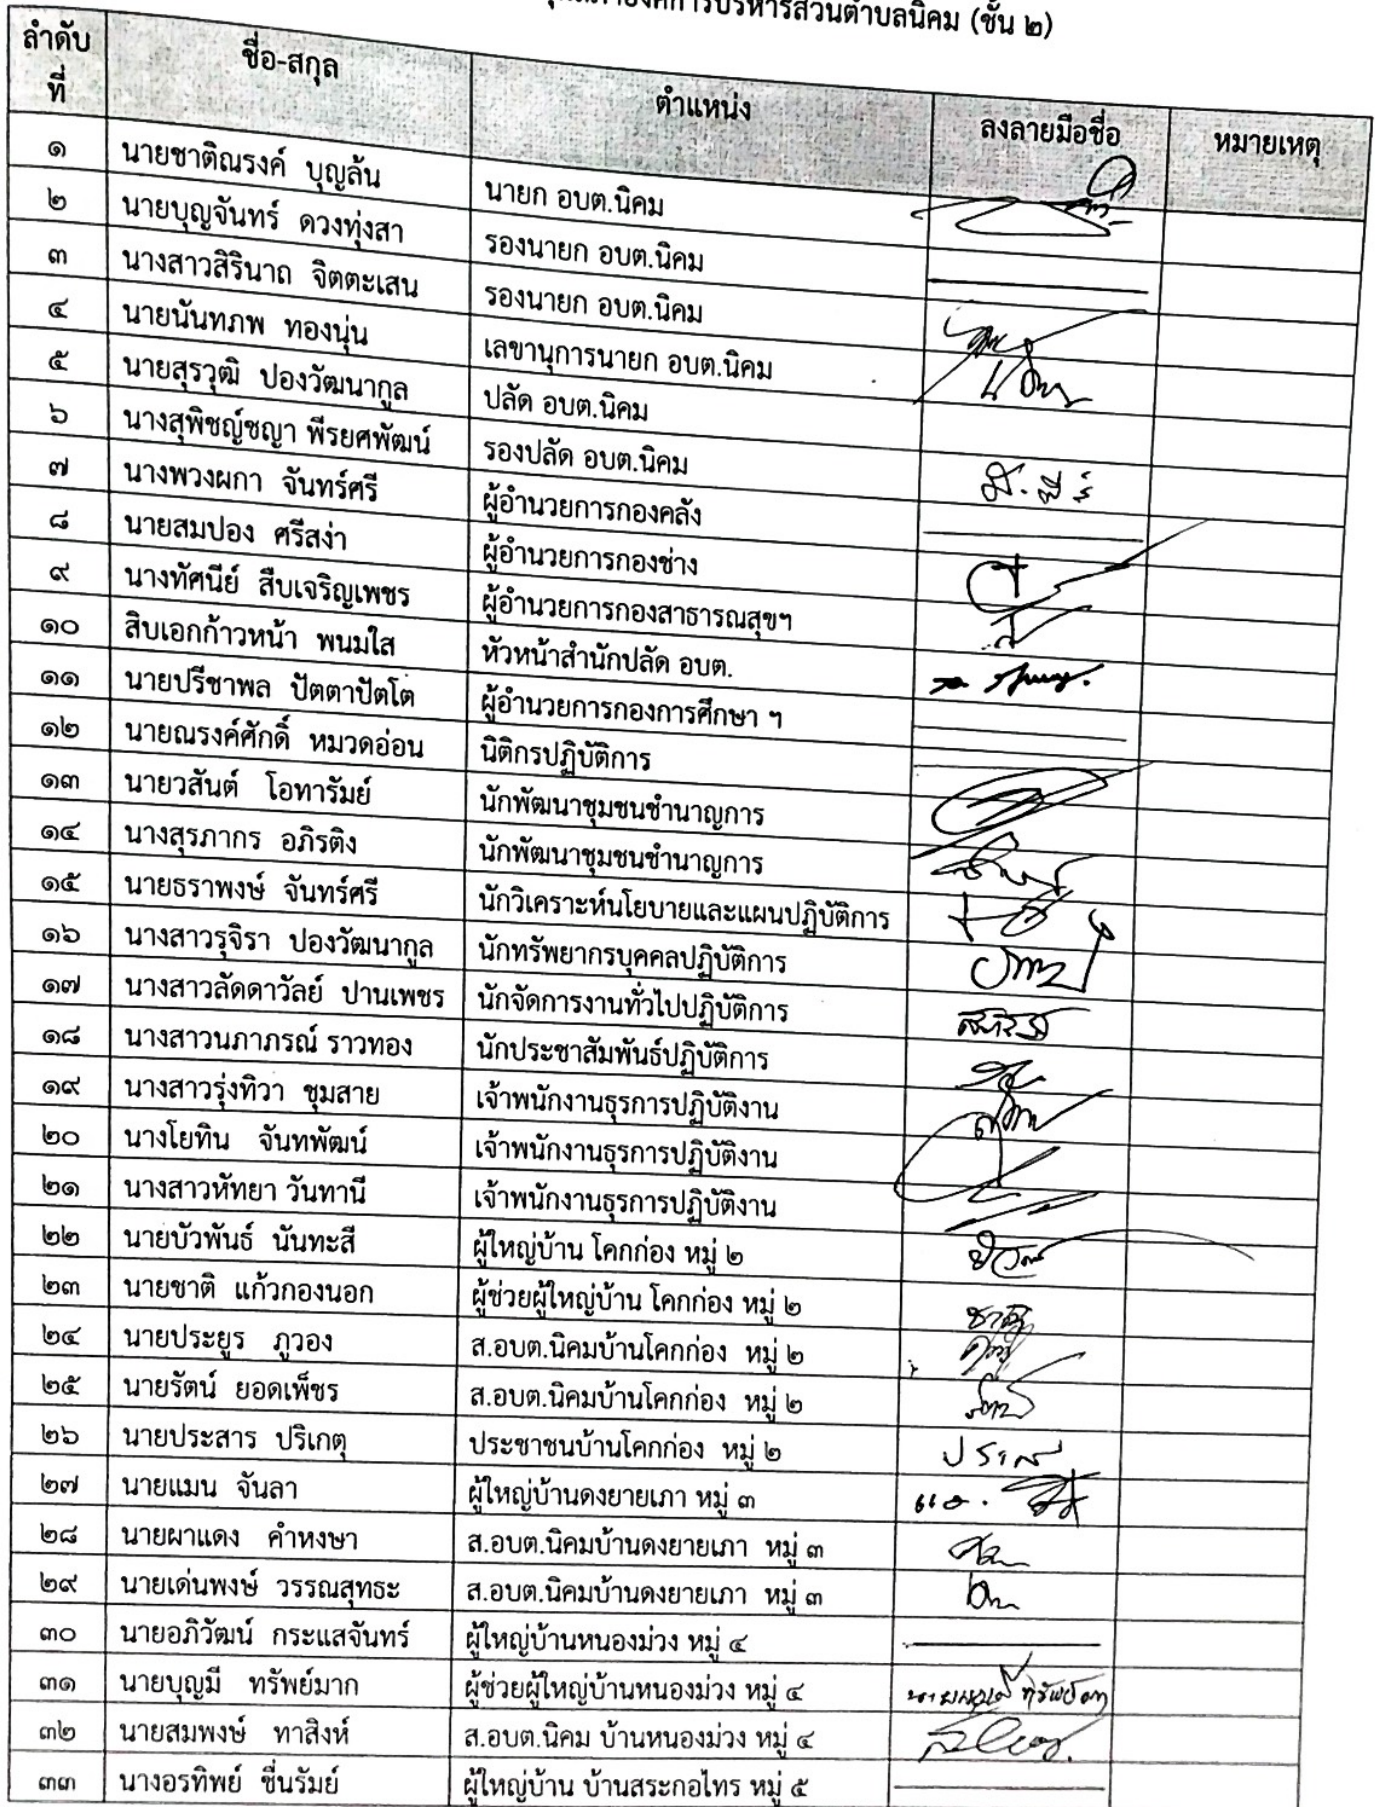 องค์การบริหารส่วนตำบลนิคม (ชั้น ๒)
ลำดับที่ ชื่อ-สกุล ตำแหน่ง ลงลายมือชื่อ หมายเหตุ
๑ นายชาติณรงค์ บุญล้น นายก อบต.นิคม
๒ นายบุญจันทร์ ดวงทุ่งสา รองนายก อบต.นิคม
๓ นางสาวสิรินาถ จิตตะเสน รองนายก อบต.นิคม
๔ นายนันทภพ ทองนุ่น เลขานุการนายก อบต.นิคม
๕ นายสุรวุฒิ ปองวัฒนากูล ปลัด อบต.นิคม
๖ นางสุพิชญ์ชญา พีรยศพัฒน์ รองปลัด อบต.นิคม
๗ นางพวงผกา จันทร์ศรี ผู้อำนวยการกองคลัง
๘ นายสมปอง ศรีสง่า ผู้อำนวยการกองช่าง
๙ นางทัศนีย์ สืบเจริญเพชร ผู้อำนวยการกองสาธารณสุขฯ
๑๐ สิบเอกก้าวหน้า พนมใส หัวหน้าสำนักปลัด อบต.
๑๑ นายปรีชาพล ปัตตาปัตโต ผู้อำนวยการกองการศึกษา ฯ
๑๒ นายณรงค์ศักดิ์ หมวดอ่อน นิติกรปฏิบัติการ
๑๓ นายวสันต์ โอทารัมย์ นักพัฒนาชุมชนชำนาญการ
๑๔ นางสุรภากร อภิรติง นักพัฒนาชุมชนชำนาญการ
๑๕ นายธราพงษ์ จันทร์ศรี นักวิเคราะห์นโยบายและแผนปฏิบัติการ
๑๖ นางสาวรุจิรา ปองวัฒนากูล นักทรัพยากรบุคคลปฏิบัติการ
๑๗ นางสาวลัดดาวัลย์ ปานเพชร นักจัดการงานทั่วไปปฏิบัติการ
๑๘ นางสาวนภาภรณ์ ราวทอง นักประชาสัมพันธ์ปฏิบัติการ
๑๙ นางสาวรุ่งทิวา ชุมสาย เจ้าพนักงานธุรการปฏิบัติงาน
๒๐ นางโยทิน จันทพัฒน์ เจ้าพนักงานธุรการปฏิบัติงาน
๒๑ นางสาวหัทยา วันทานี เจ้าพนักงานธุรการปฏิบัติงาน
๒๒ นายบัวพันธ์ นันทะสี ผู้ใหญ่บ้าน โคกก่อง หมู่ ๒
๒๓ นายชาติ แก้วกองนอก ผู้ช่วยผู้ใหญ่บ้าน โคกก่อง หมู่ ๒ ชาติ
๒๔ นายประยูร ภูวอง ส.อบต.นิคมบ้านโคกก่อง หมู่ ๒
๒๕ นายรัตน์ ยอดเพ็ชร ส.อบต.นิคมบ้านโคกก่อง หมู่ ๒
๒๖ นายประสาร ปริเกตุ ประชาชนบ้านโคกก่อง หมู่ ๒
๒๗ นายแมน จันลา ผู้ใหญ่บ้านดงยายเภา หมู่ ๓
๒๘ นายผาแดง คำหงษา ส.อบต.นิคมบ้านดงยายเภา หมู่ ๓
๒๙ นายเด่นพงษ์ วรรณสุทธะ ส.อบต.นิคมบ้านดงยายเภา หมู่ ๓
๓๐ นายอภิวัฒน์ กระแสจันทร์ ผู้ใหญ่บ้านหนองม่วง หมู่ ๔
๓๑ นายบุญมี ทรัพย์มาก ผู้ช่วยผู้ใหญ่บ้านหนองม่วง หมู่ ๔ นายบุญมี ทรัพย์มาก
๓๒ นายสมพงษ์ ทาสิงห์ ส.อบต.นิคม บ้านหนองม่วง หมู่ ๔
๓๓ นางอรทิพย์ ชื่นรัมย์ ผู้ใหญ่บ้าน บ้านสระกอไทร หมู่ ๕